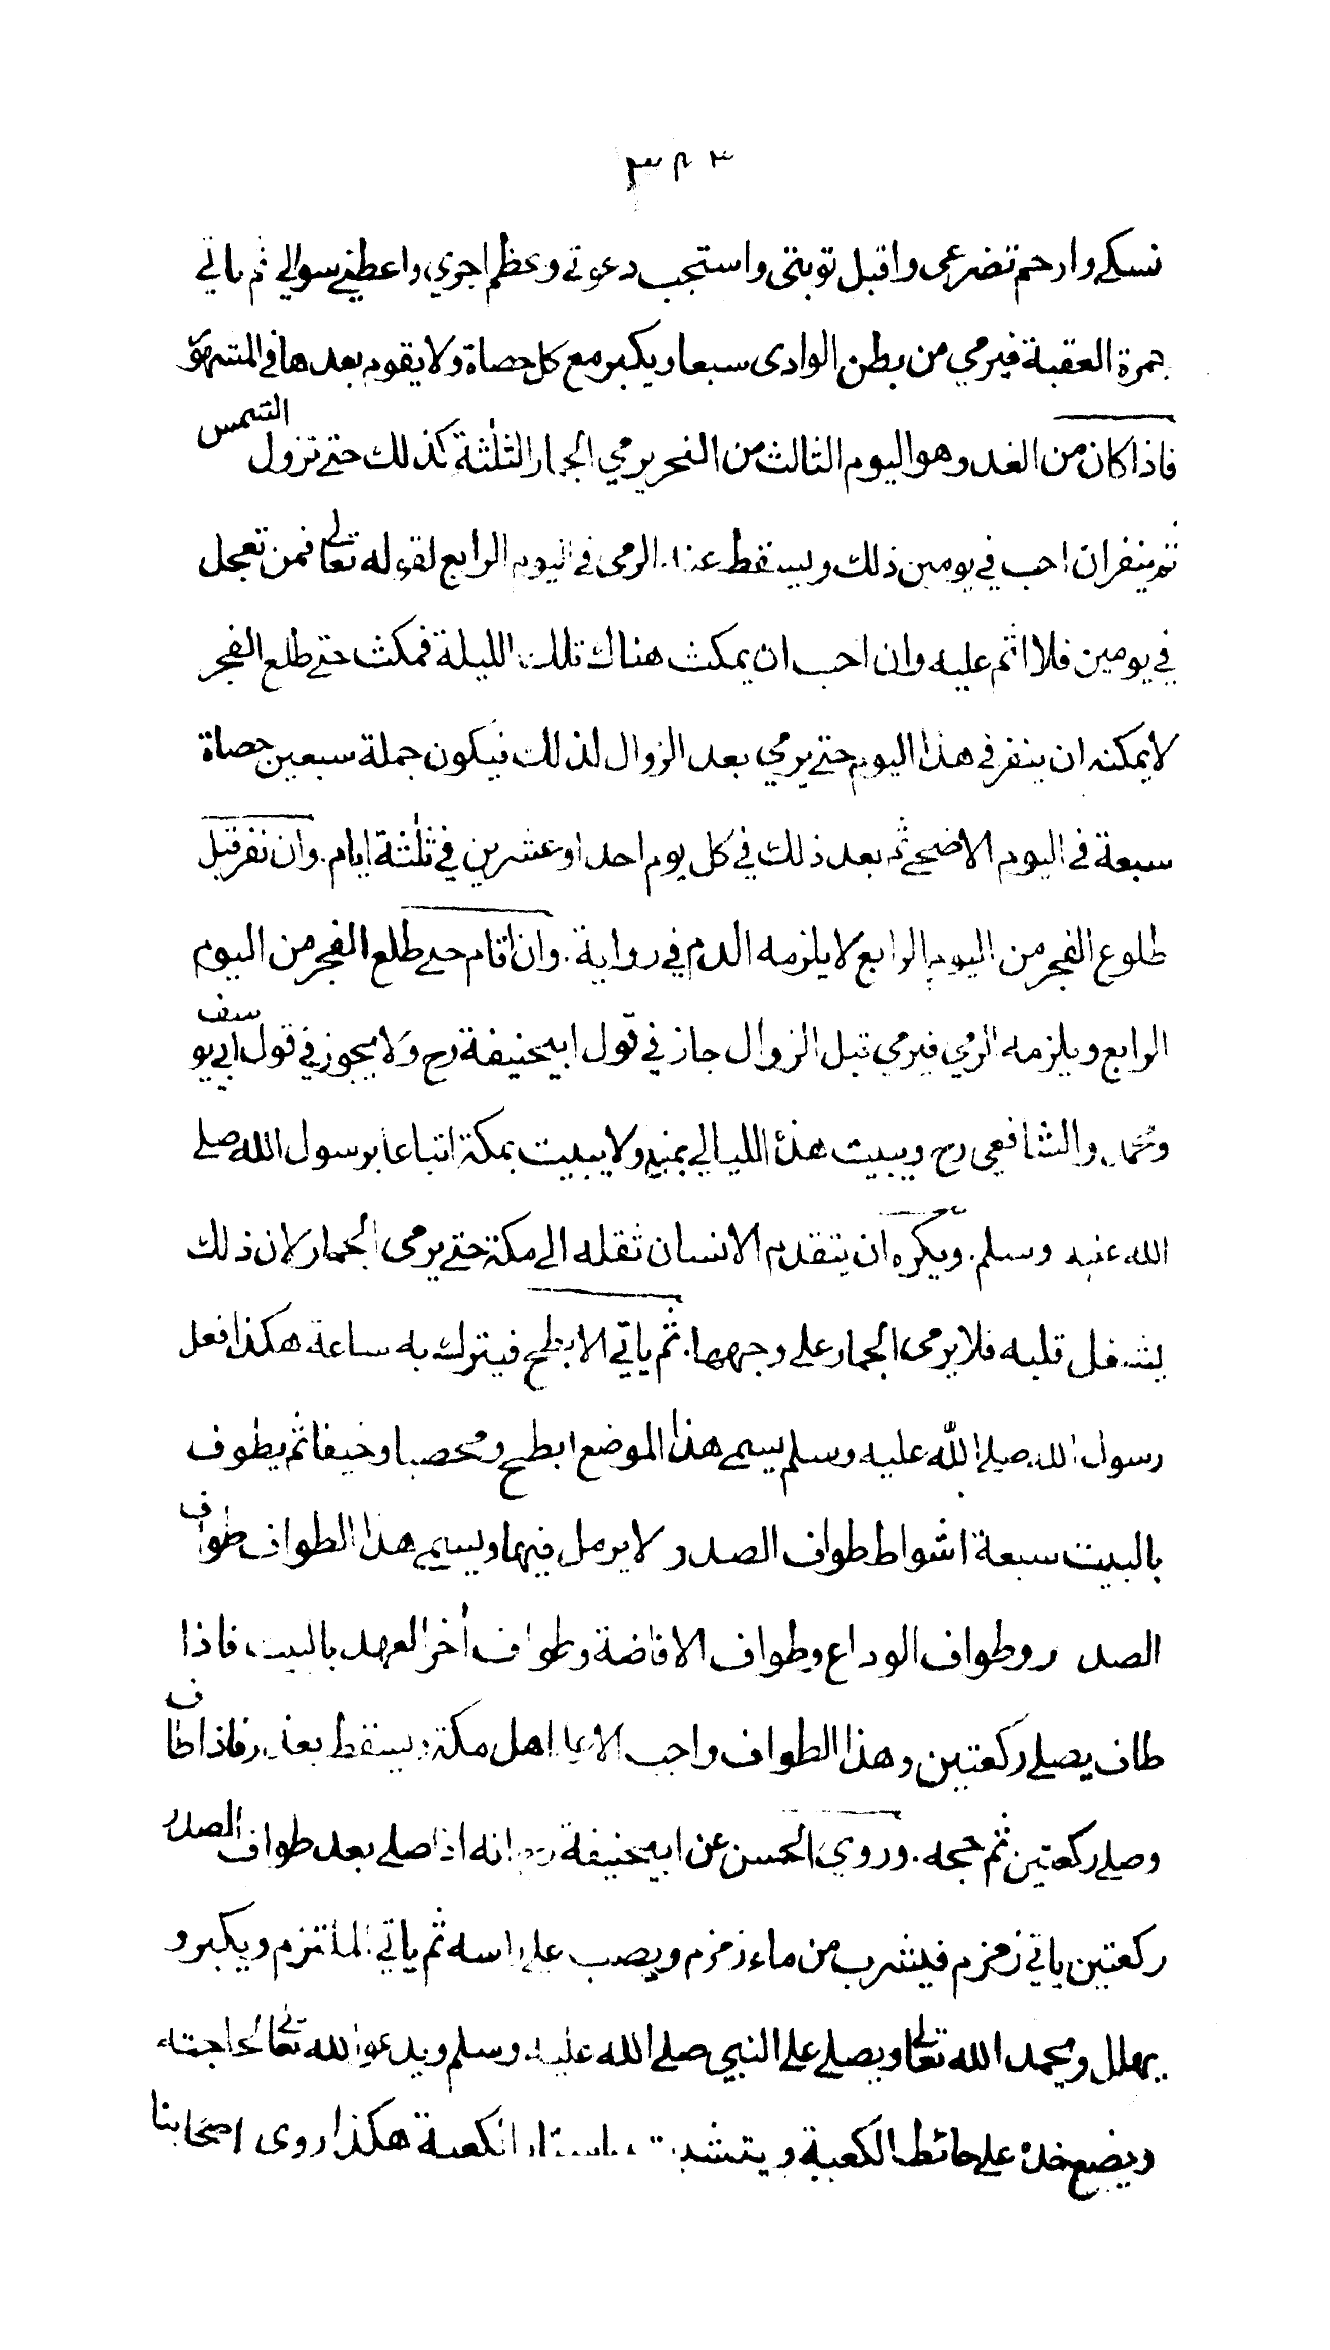 ٣٢٣
نسكي وارحم تضرعى واقبل توبتى واستجب دعوتى وعظم اجري واعطني سوالي ثم ياتي
جمرة العقبة فيرمي من بطن الوادى سبعا ويكبر مع كل حصاة ولا يقوم بعدها فى المشهور
فاذا كان من الغد وهو اليوم الثالث من النحر يرمي الجمار الثلثة كذلك حتى تزول الشمس
ثم ينفر ان احب في يومين ذلك ويسقط عنه الرمى فى اليوم الرابع لقوله تعالى فمن تعجل
في يومين فلا اثم عليه وان احب ان يمكث هناك تلك الليلة فمكث حتى طلع الفجر
لا يمكنه ان ينفر فى هذا اليوم حتى يرمي بعد الزوال لذلك فيكون جملة سبعين حصاة
سبعة فى اليوم الاضحى ثم بعد ذلك في كل يوم احد او عشرين في ثلثة ايام. وان نفر قبل
طلوع الفجر من اليوم الرابع لا يلزمه الدم في رواية. وان اقام حتى طلع الفجر من اليوم
الرابع ويلزمه الرمي فيرمي قبل الزوال جاز في قول ابيحنيفة رح ولا يجوز في قول ابي يوسف
ومحمد والشافعي رح ويبيت هذه الليالي بمنى ولا يبيت بمكة اتباعا برسول الله صلى
الله عليه وسلم. ويكره ان يتقدم الانسان ثقله الى مكة حتى يرمى الجمار لان ذلك
يشغل قلبه فلا يرمى الجمار على وجهها. ثم ياتي الابطح فيترك به ساعة هكذا فعل
رسول الله صلى الله عليه وسلم يسمى هذا الموضع ابطح ومحصبا وخيفا ثم يطوف
بالبيت سبعة اشواط طواف الصدر لا يرمل فيها ويسمى هذا الطواف طواف
الصدر وطواف الوداع وطواف الافاضة وطواف أخر العهد بالبيت فاذا
طاف يصلى ركعتين وهذا الطواف واجب الا على اهل مكة ويسقط بعذر فاذا طاف
وصلى ركعتين ثم حجه. وروي الحسن عن ابيحنيفة رح انه اذا صلى بعد طواف الصدر
ركعتين ياتي زمزم فيشرب من ماء زمزم ويصب على راسه ثم ياتي الملتزم ويكبر و
يهلل ويحمد الله تعالى ويصلى على النبي صلى الله عليه وسلم ويدعو الله تعالى لحاجته
ويضع خده على حائط الكعبة ويتشبث باستار الكعبة هكذا روى اصحابنا